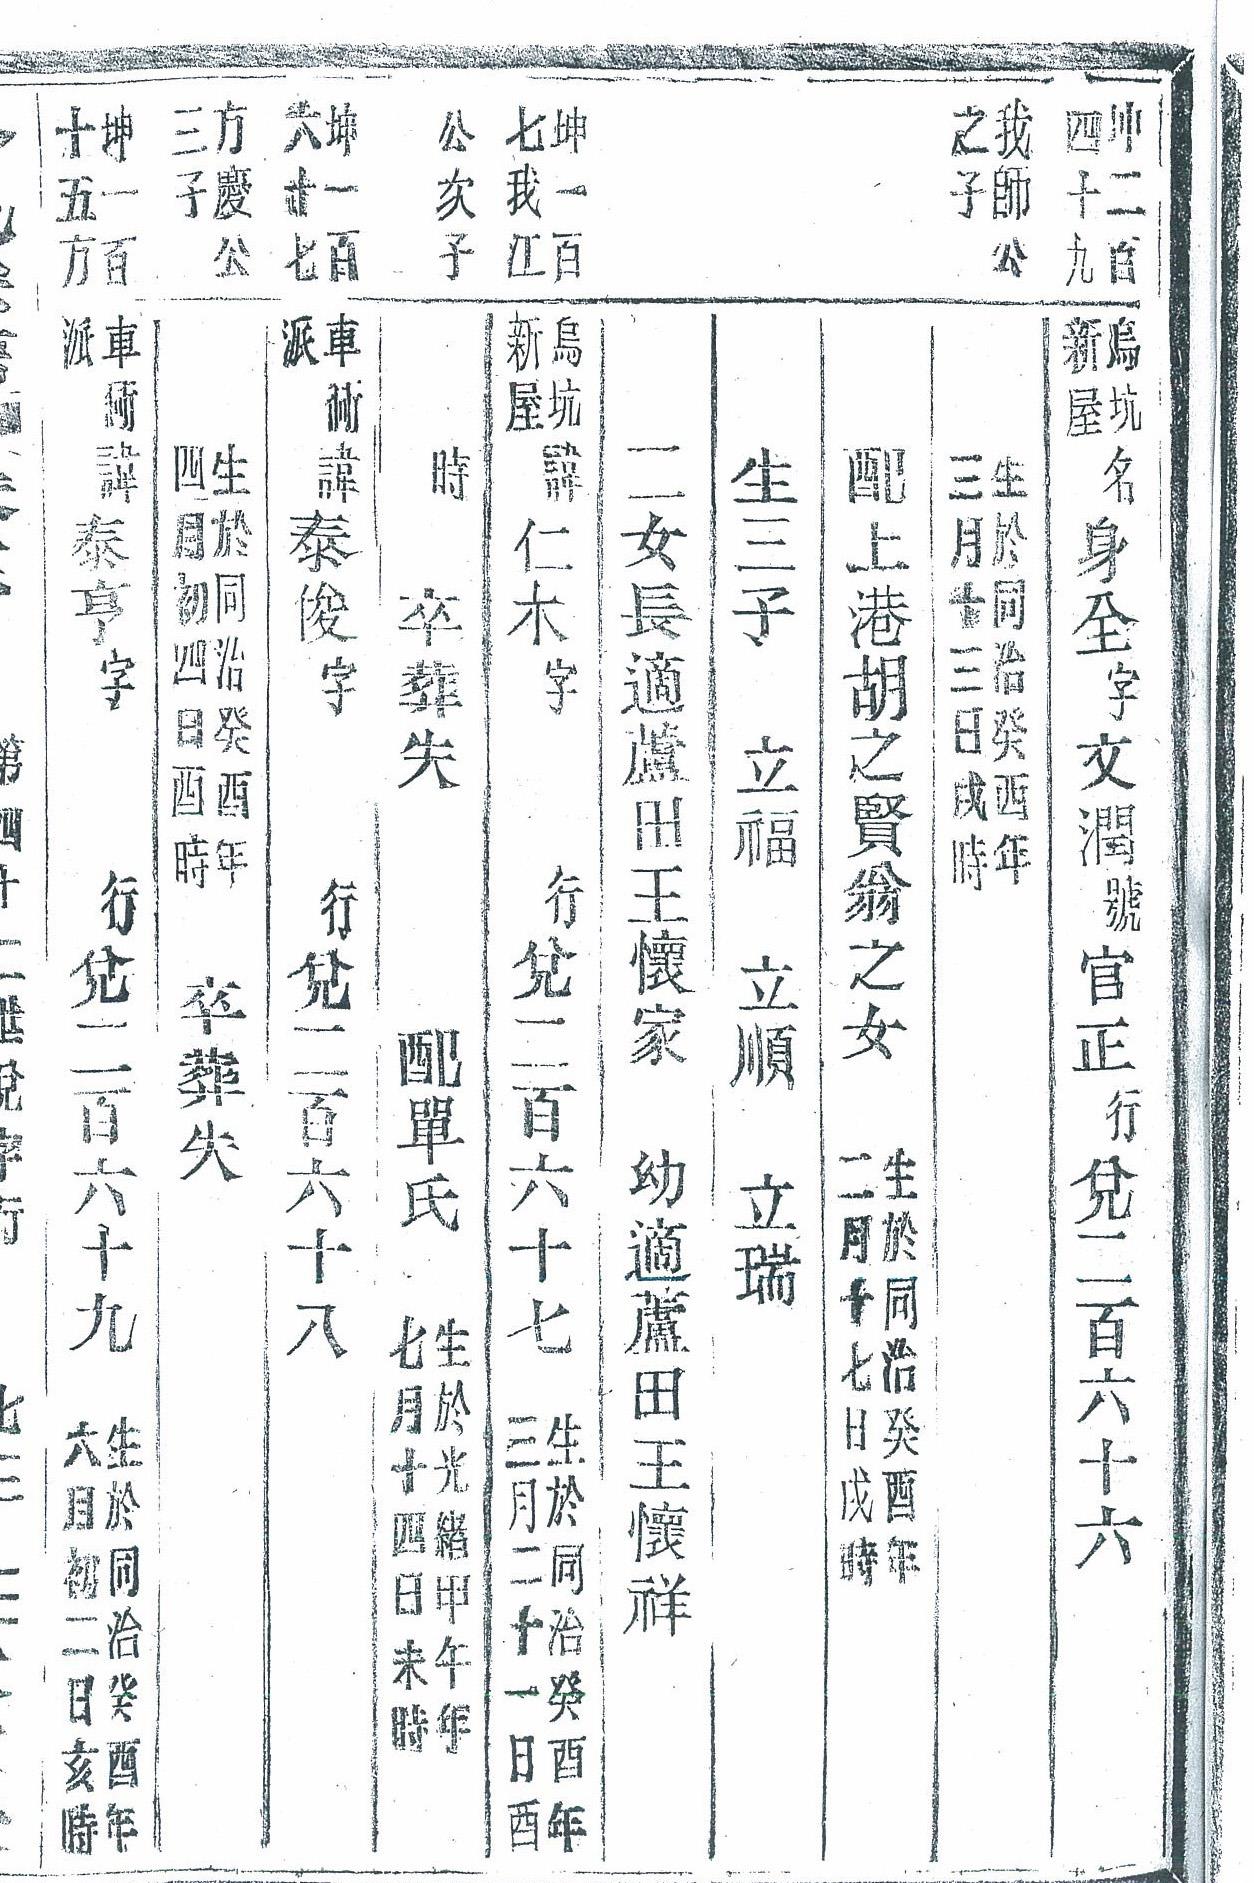 坤二百
四十九
我師公
之子
烏坑
新屋
名身全字文潤號官正行兌二百六十六
生於同治癸酉年
三月十三日戌時
配上港胡之賢翁之女
生於同治癸酉年
二月十七日戌時
生三子 立福 立順 立瑞
二女長適蘆田王懷家 幼適蘆田王懷祥
坤一百
七我江
公次子
烏坑
新屋
諱仁木字 行兌二百六十七
生於同治癸酉年
三月二十一日酉
時 卒葬失 配單氏
生於光緒甲午年
七月十四日未時
坤一百
六廿七
方慶公
三子
車衕
派
諱泰俊字 行兌二百六十八
生於同治癸酉年
四月初四日酉時
卒葬失
坤一百
十五方
車衕
派
諱泰亨字 行兌二百六十九
生於同治癸酉年
六月初二日亥時